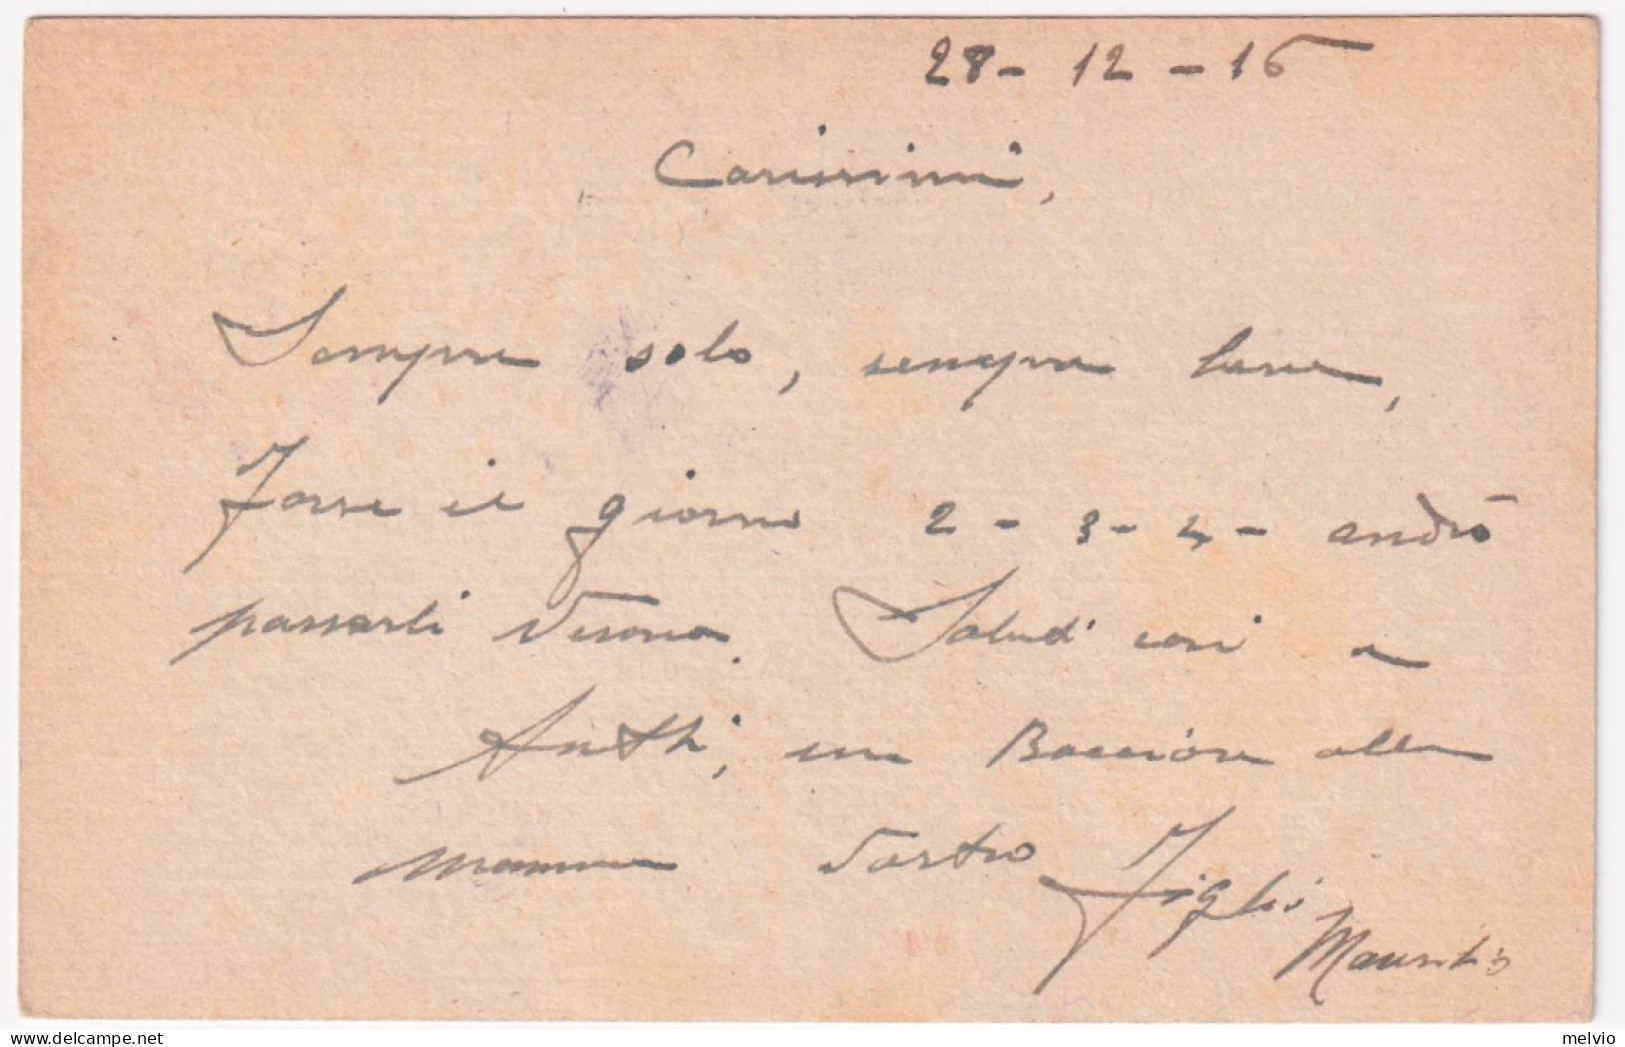 28 - 12 - 16
Carissimi,
Sempre solo, sempre bene,
Forse il giorno 2 - 3 - 4 - andrò
passarli Verona. Saluti cari a
tutti, un Bacione alla
mamma Vostro Figlio
Maurizio
melvio